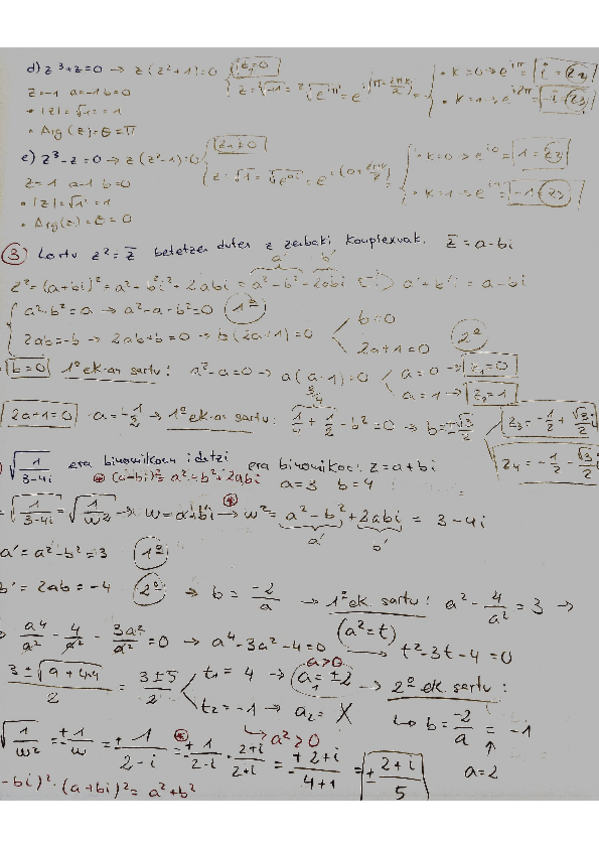 d) z³+z=0 → z(z²+1)=0 z₁=0 z=√-1 = ²√e^{iπ} = e^{i(π+2πk/2)} • k=0 → i=z₂
z=-1 a=-1 b=0 • k=1 → -i=z₃
• |z|=√1=1
• Arg(z)=θ=π
e) z³-z=0 → z(z²-1)=0 z₁=0 • k=0 → e^{i0} 1=z₂
z=1 a=1 b=0 z=√1
• |z|=√1=1 • k=1 → e^{iπ} -1=z₃
• Arg(z)=θ=0
③ Lortu z²=z̄ betetzen duten z zenbaki konplexuak. z̄=a-bi
a' b'
z²=(a+bi)²=a²-b²i²-2abi=a²-b²-2abi a'+b'i=a-bi
a²-b²=a → a²-a-b²=0 1º b=0
2ab=-b → 2ab+b=0 → b(2a+1)=0 2a+1=0 2º
b=0 1º ek-an sartu: a²-a=0 → a(a-1)=0 a=0 → z₁=0
a=1 → z₂=1
2a+1=0 a=-1/2 → 1º ek-an sartu: 1/4+1/2-b²=0 → b=±√3/2 z₃=-1/2+√3/2 i
z₄=-1/2-√3/2 i
√(1/(3-4i)) era binomikoan idatzi era binomikoa: z=a+bi
(a+bi)²=a²-b²+2abi a=3 b=4
√(1/(3-4i))=√(1/w²) → w=a+bi → w²=a²-b²+2abi=3-4i
a' b'
a'=a²-b²=3 1º
b'=2ab=-4 2º → b=-2/a → 1º ek. sartu: a²-4/a²=3 →
a⁴/a²-4/a²-3a²/a²=0 → a⁴-3a²-4=0 (a²=t) t²-3t-4=0
3±√(9+4·4)/2=3±5/2 t₁=4 → a>0 a₁=±2 → 2º ek. sartu:
t₂=-1 → a₂=X b=-2/a=-1
a²>0 a=2
√(1/w²)=±1/w=±1/(2-i)=±1/(2-i)·(2+i)/(2+i)=±(2+i)/(4+1)=±(2+i)/5
-bi)²·(a+bi)²=a²+b²